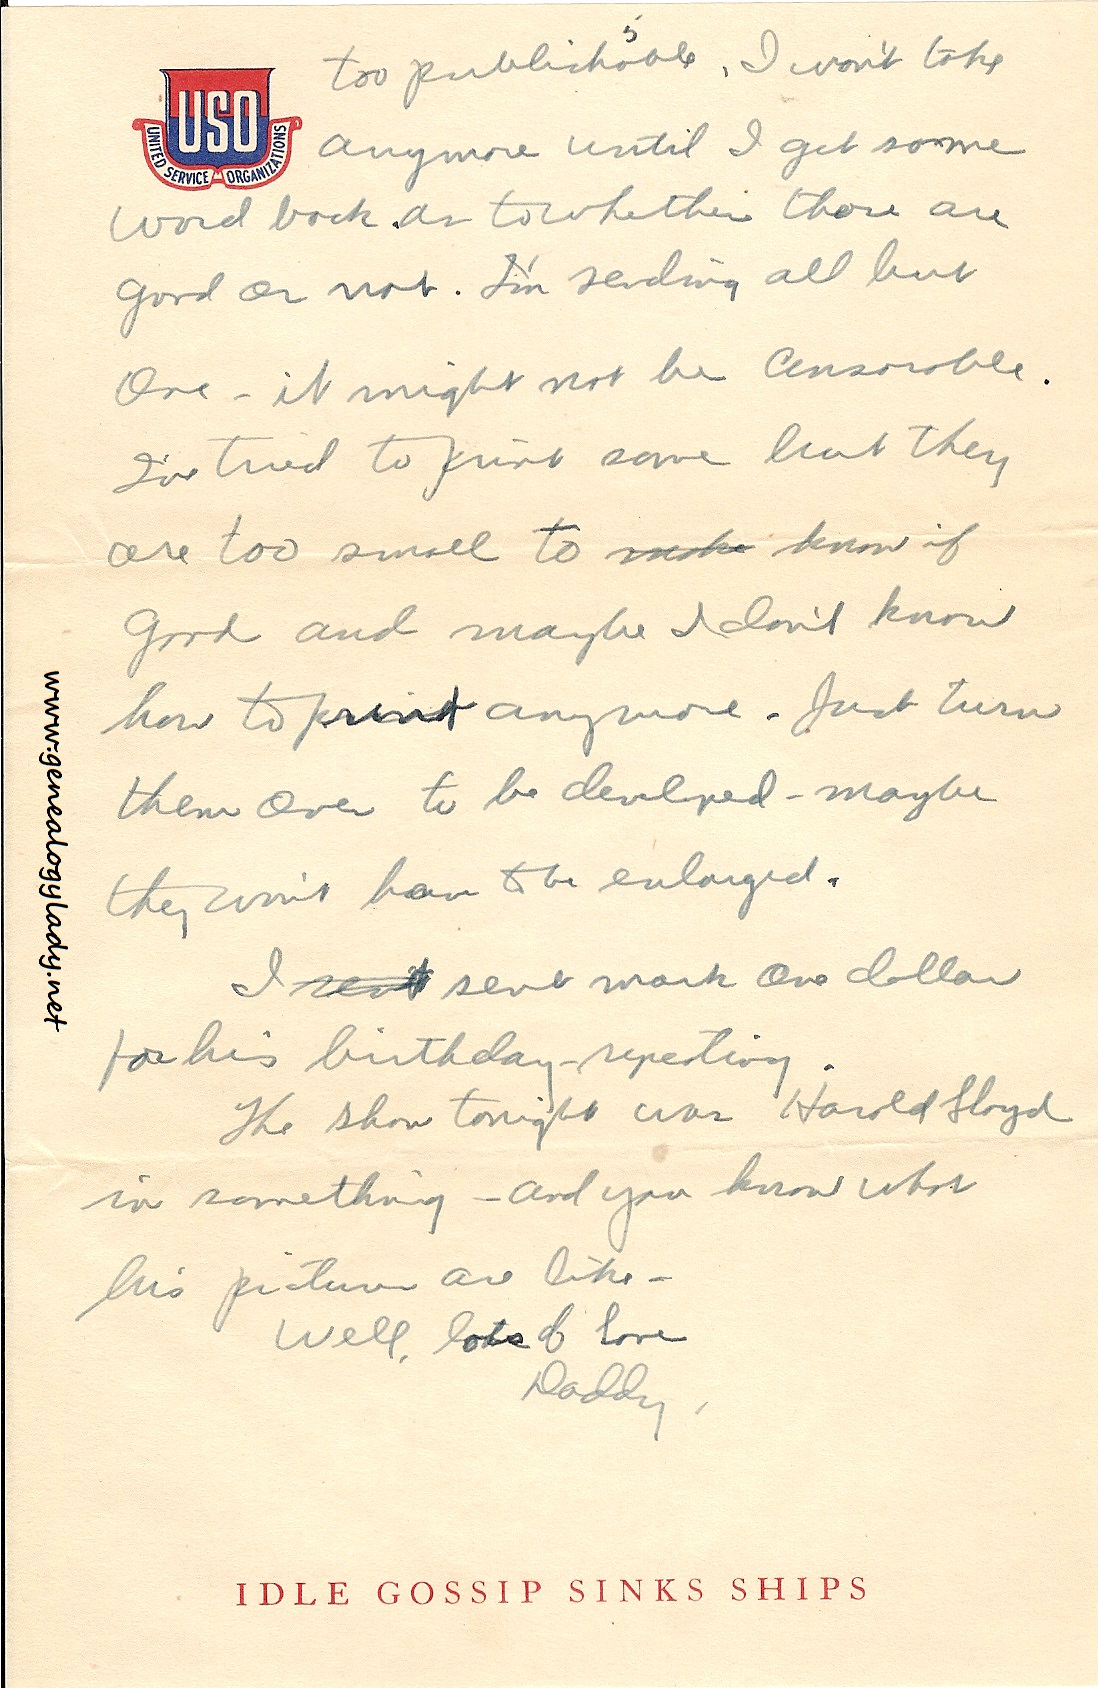 5
too publishable. I won't take
USO
UNITED SERVICE ORGANIZATIONS
anymore until I get some
word back as to whether these are
good or not. I'm sending all but
one - it might not be censorable.
I've tried to print some but they
are too small to make know if
good and maybe I don't know
how to print anymore. Just turn
them over to be developed - maybe
they won't have to be enlarged.
I sent sent mark one dollar
for his birthday - repeating.
The show tonight was Harold Lloyd
in something - and you know what
his pictures are like -
Well, lots of love
Daddy,
IDLE GOSSIP SINKS SHIPS
www.genealogylady.net